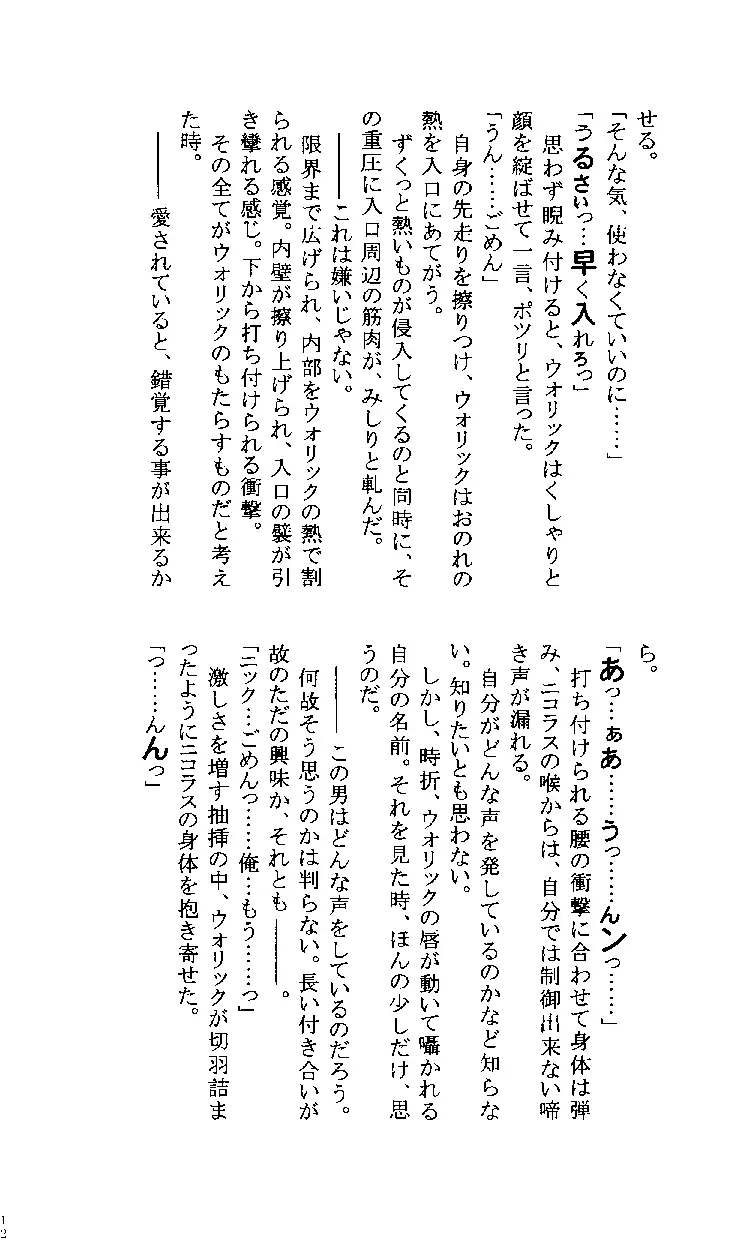 せる。
「そんな気、使わなくていいのに……」
「うるさいっ…早く入れろっ」
思わず睨み付けると、ウォリックはくしゃりと
顔を綻ばせて一言、ポツリと言った。
「うん……ごめん」
自身の先走りを擦りつけ、ウォリックはおのれの
熱を入口にあてがう。
ずくっと熱いものが侵入してくるのと同時に、そ
の重圧に入口周辺の筋肉が、みしりと軋んだ。
――これは嫌いじゃない。
限界まで広げられ、内部をウォリックの熱で割
られる感覚。内壁が擦り上げられ、入口の襞が引
き攣れる感じ。下から打ち付けられる衝撃。
その全てがウォリックのもたらすものだと考え
た時。
――愛されていると、錯覚する事が出来るか
ら。
「あっ…ぁあ……うっ……んンっ……」
打ち付けられる腰の衝撃に合わせて身体は弾
み、ニコラスの喉からは、自分では制御出来ない啼
き声が漏れる。
自分がどんな声を発しているのかなど知らな
い。知りたいとも思わない。
しかし、時折、ウォリックの唇が動いて囁かれる
自分の名前。それを見た時、ほんの少しだけ、思
うのだ。
――この男はどんな声をしているのだろう。
何故そう思うのかは判らない。長い付き合いが
故のただの興味か、それとも――。
「ニック…ごめんっ……俺…もう……っ」
激しさを増す抽挿の中、ウォリックが切羽詰ま
ったようにニコラスの身体を抱き寄せた。
「っ……んんっ」
12